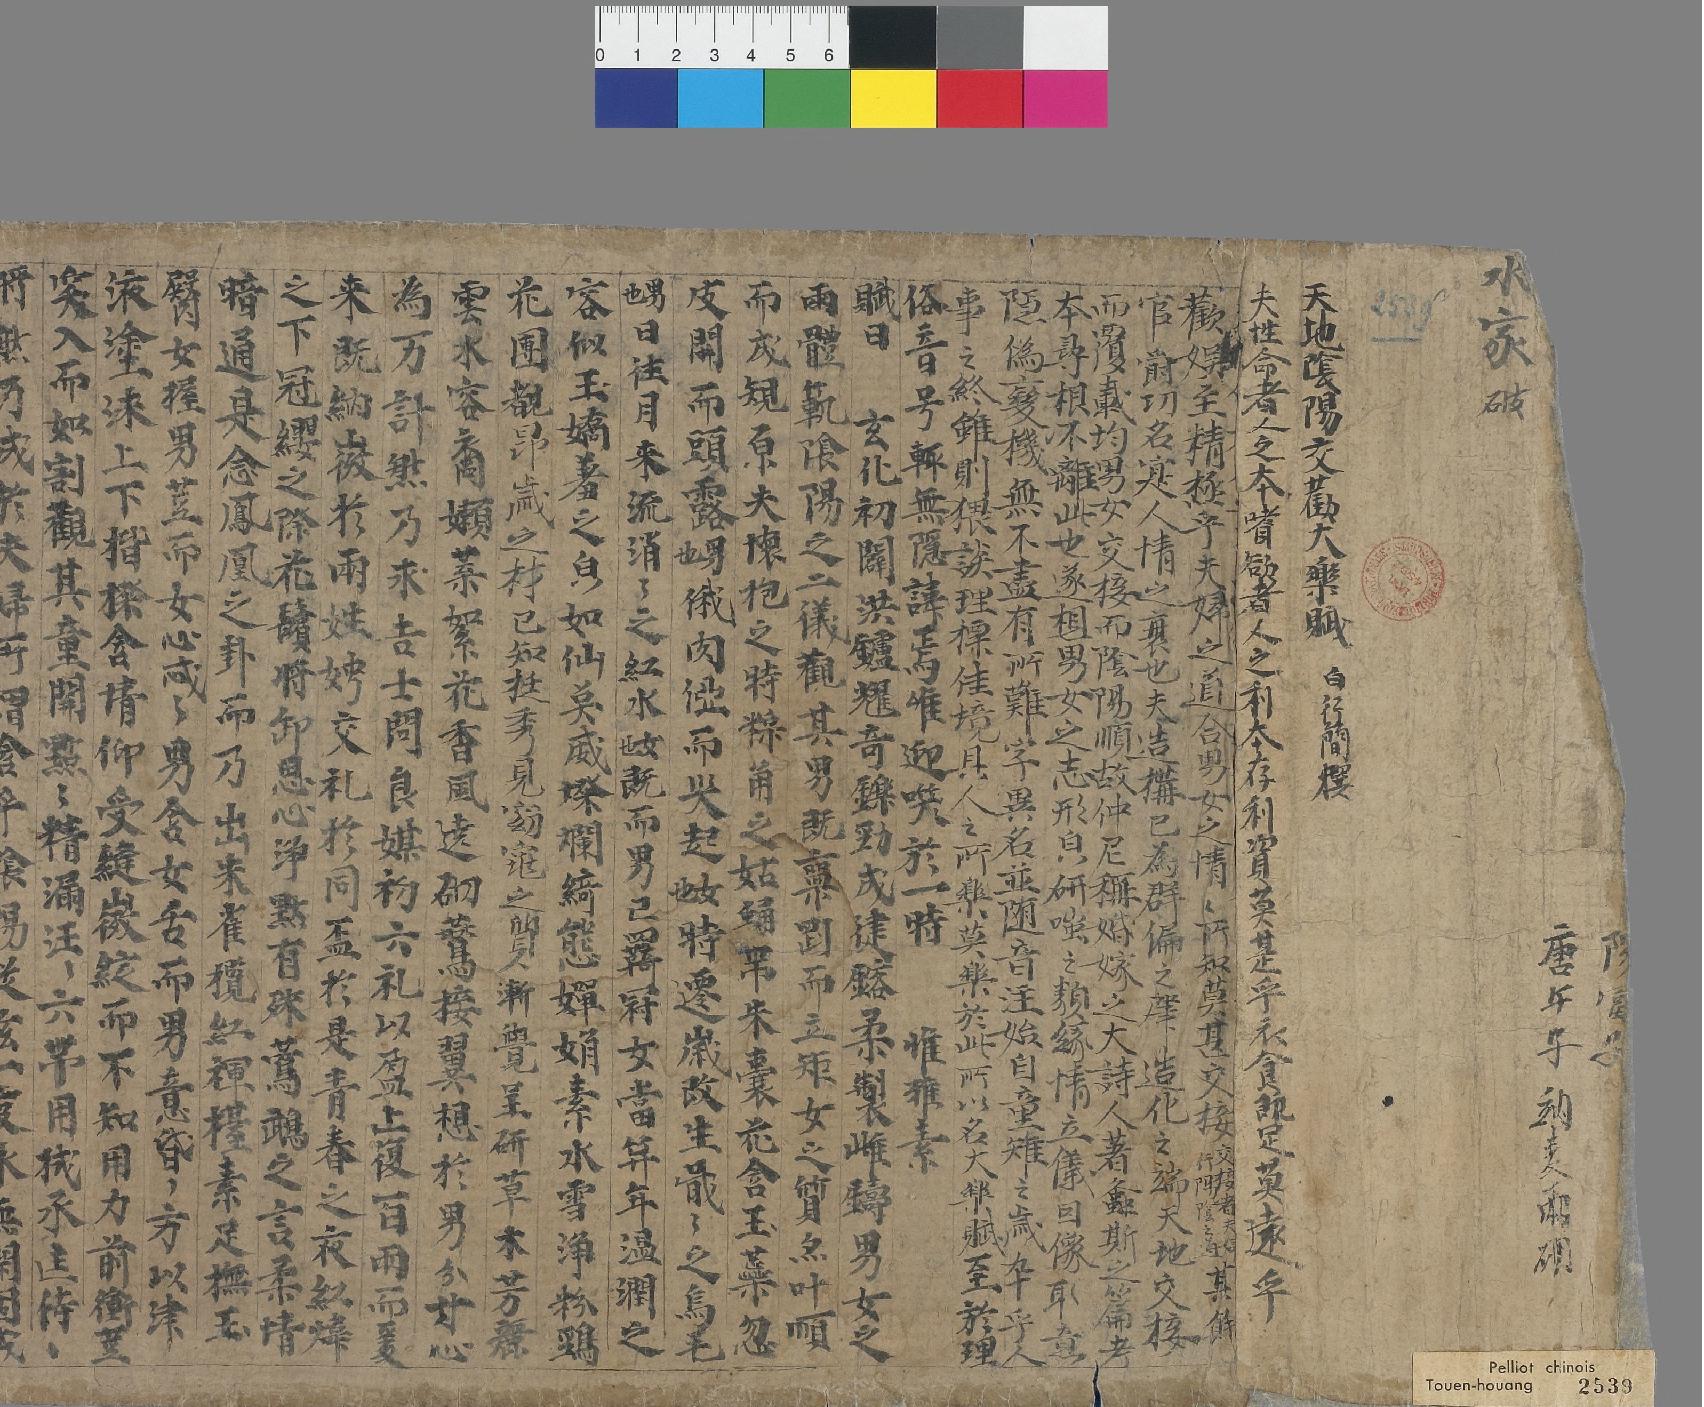 水家
破
唐年子
2539
天地陰陽交歡大樂賦 白行簡撰
夫性命者人之本嗜欲者人之利本存利資莫甚乎衣食既足莫遠乎
歡娛至精極乎夫婦之道合男女之情情所知莫甚交接 其餘
官爵功名寔人情之衰也夫造構已為群倫之肇造化之端天地交接
而覆載均男女交接而陰陽順故仲尼稱婚嫁之大詩人著螽斯之篇考
本尋根不離此也遂想男女之志形皃妍嗤之類緣情立儀因像取意
隱偽變機無不盡有所難字異名並隨音注始自童稚之歲卒乎人
事之終雖則猥談理標佳境具人之所樂莫樂於此所以名大樂賦至於理
俗音号輒無隱諱焉惟迎唉於一時 惟雅素
賦曰 玄化初闢洪鑪耀奇鑠勁成健鎔柔製雌鑄男女之
兩體範陰陽之二儀觀其男既稟剛而立矩女之質亦叶順
而成規原夫懷抱之時 帶朱囊花含玉葉忽
皮開而頭露也男俄肉 而突起也女時遷歲改生戢戢之烏毛
也男日往月來流涓涓之紅水也女既而男已羈冠女當笄年溫潤之
容似玉嬌羞之皃如仙英威燦爛綺態嬋娟素水雪淨粉頸
花團覩昂歲之材已知挺秀見窈窕之質漸覺呈妍草木芳麗
雲水容裔嫩葉絮花香風遶砌鷰接翼想於男分寸心
為万計然乃求吉士問良媒初六礼以盈止復百兩而爰
来既納徵於兩姓娉交礼於同盃於是青春之夜紅煒
之下冠纓之際花鬢將卸思心淨默有殊鸚鵡之言柔情
暗通是念鳳凰之卦而乃出朱雀攬紅褌擡素足撫玉
臀女握男莖而女心忒忒男含女舌而男意昏昏方以津
液塗抹上下揩擦含情仰受縫微綻而不知用力前衝莖
突入而如割觀其童開點點精漏汪汪六帶用拭承筐是
將然乃成於夫婦所謂合乎陰陽從茲一度永無閉固或
Pelliot chinois
Touen-houang 2539
0 1 2 3 4 5 6